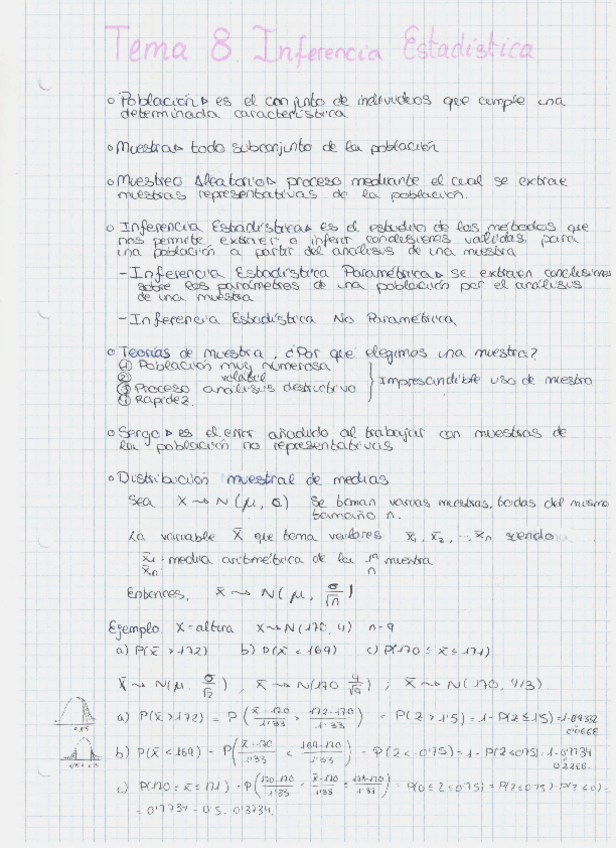 Tema 8. Inferencia Estadística
○ Población ▷ es el conjunto de individuos que cumple una
determinada característica
○ Muestra ▷ todo subconjunto de la población
○ Muestreo Aleatorio ▷ proceso mediante el cual se extrae
muestras representativas de la población.
○ Inferencia Estadística ▷ es el estudio de los métodos que
nos permite extraer o inferir conclusiones validas para
una población a partir del análisis de una muestra
- Inferencia Estadística Paramétrica ▷ se extraen conclusiones
sobre los parámetros de una población por el análisis
de una muestra
- Inferencia Estadística No Paramétrica
○ Teorías de muestra. ¿Por que elegimos una muestra?
① Población muy numerosa
② " volátil
③ Proceso análisis destructivo } Imprescindible uso de muestra
④ Rapidez.
○ Sergo ▷ es el error añadido al trabajar con muestras de
la población no representativas
○ Distribución muestral de medias
Sea X ⟿ N(μ, σ) Se toman varias muestras, todas del mismo
tamaño n.
La variable X̄ que toma valores x̄₁, x̄₂, ... x̄n siendo
x̄₁ : media aritmética de la 1ª muestra
x̄n n
Entonces, x̄ ⟿ N(μ, σ/√n)
Ejemplo X = altura X ⟿ N(170, 4) n = 9
a) P(x̄ > 172) b) P(x̄ < 169) c) P(170 ≤ x̄ ≤ 171)
X̄ ⟿ N(μ, σ/√n), X̄ ⟿ N(170, 4/√9); X̄ ⟿ N(170, 4/3)
a) P(x̄ > 172) = P(x̄-170/1'33 > 172-170/1'33) = P(Z > 1'5) = 1 - P(Z ≤ 1'5) = 1-0'9332
0'0668
b) P(x̄ < 169) = P(x̄-170/1'33 < 169-170/1'33) = P(Z < -0'75) = 1 - P(Z < 0'75) = 1-0'7734
0'2266
c) P(170 ≤ x̄ ≤ 171) = P(170-170/1'33 ≤ x̄-170/1'33 ≤ 171-170/1'33) = P(0 ≤ Z ≤ 0'75) = P(Z ≤ 0'75) - P(Z ≤ 0) =
= 0'7734 - 0'5 = 0'2734.